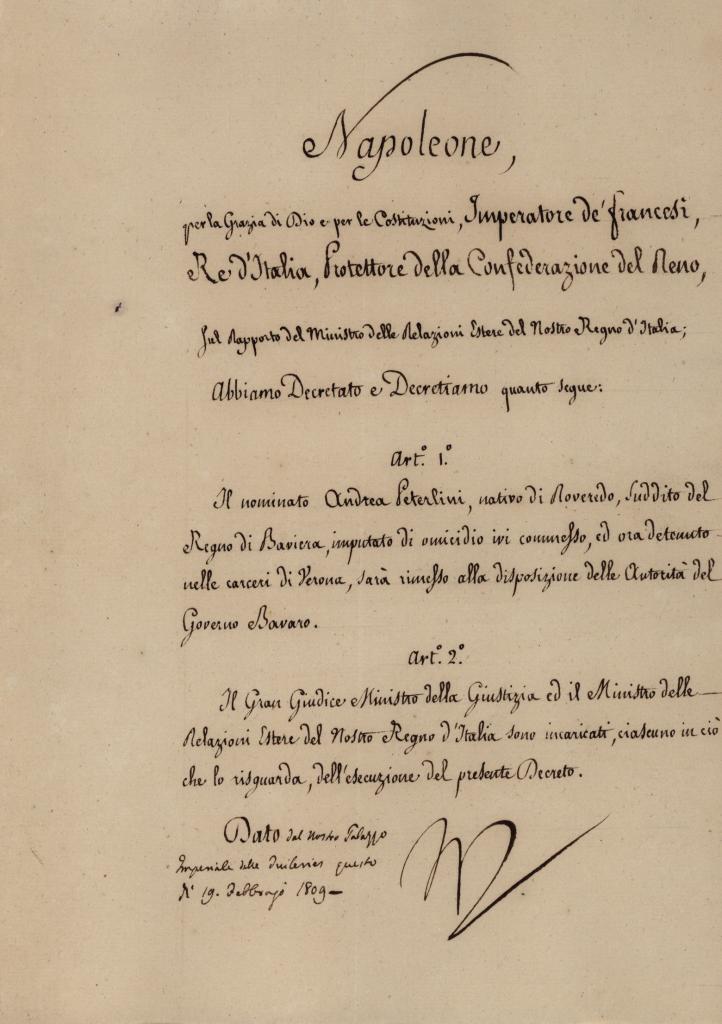 Napoleone,
per la Grazia di Dio e per le Costituzioni, Imperatore de' francesi,
Re d'Italia, Protettore della Confederazione del Reno,
Sul Rapporto del Ministro delle Relazioni Estere del Nostro Regno d'Italia;
Abbiamo Decretato e Decretiamo quanto segue:
Art.° 1.°
Il nominato Andrea Peterlini, nativo di Roveredo, Suddito del
Regno di Baviera, imputato di omicidio ivi commesso, ed ora detenuto
nelle carceri di Verona, sarà rimesso alla disposizione delle Autorità del
Governo Bavaro.
Art.° 2.°
Il Gran Giudice Ministro della Giustizia ed il Ministro delle
Relazioni Estere del Nostro Regno d'Italia sono incaricati, ciascuno in ciò
che lo risguarda, dell'esecuzione del presente Decreto.
Dato dal Nostro Palazzo
Imperiale delle Tuileries questo
19. Febbrajo 1809